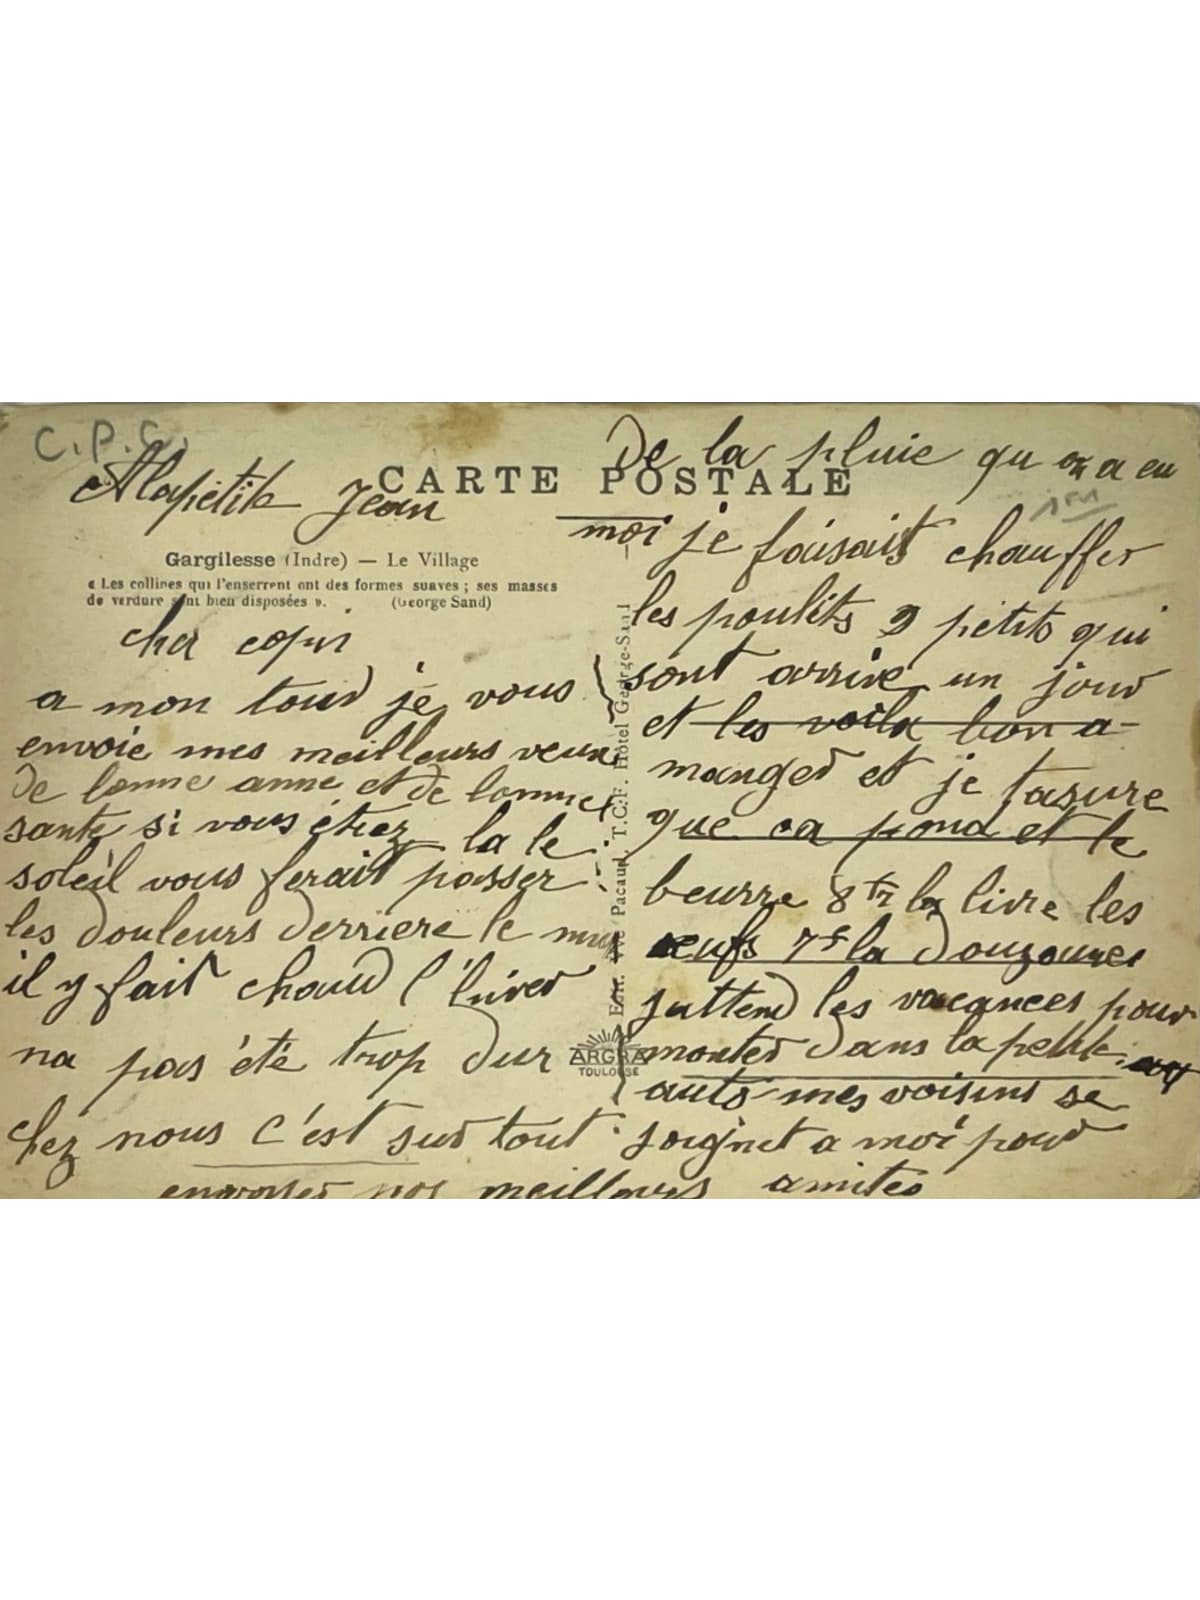 C.P.C.
Alapetite Jean
CARTE POSTALE
Gargilesse (Indre) — Le Village
« Les collines qui l'enserrent ont des formes suaves ; ses masses
de verdure sont bien disposées ». (George Sand)
cher copin
a mon tour je vous
envoie mes meilleurs veux
de bonne anne et de bonne
sante si vous étiez la le
soleil vous ferait passer
les douleurs derriere le mur
il y fait chaud l'hiver
na pas été trop dur
chez nous c'est sur tout
de la pluie qu on a eu
moi je faisait chauffer
les poulets 2 petits qui
sont arrive un jour
et les voila bon a
manger et je tasure
que ca pond et le
beurre 8 fr la livre les
œufs 7f la douzaines
jattend les vacances pour
monter dans la petite
auto mes voisins se
joignet a moi pour
envoyer nos meilleurs amites
Edit. Vve Pacaud, T.C.F. Hôtel George-Sand
ARGRA
TOULOUSE